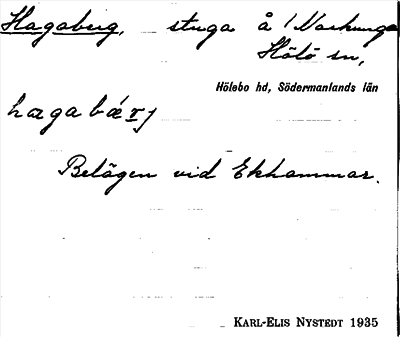 Hagaberg, stuga å
Hölö sn,
Hölebo hd, Södermanlands län
Belägen vid Ekhammar.
KARL-ELIS NYSTEDT 1935